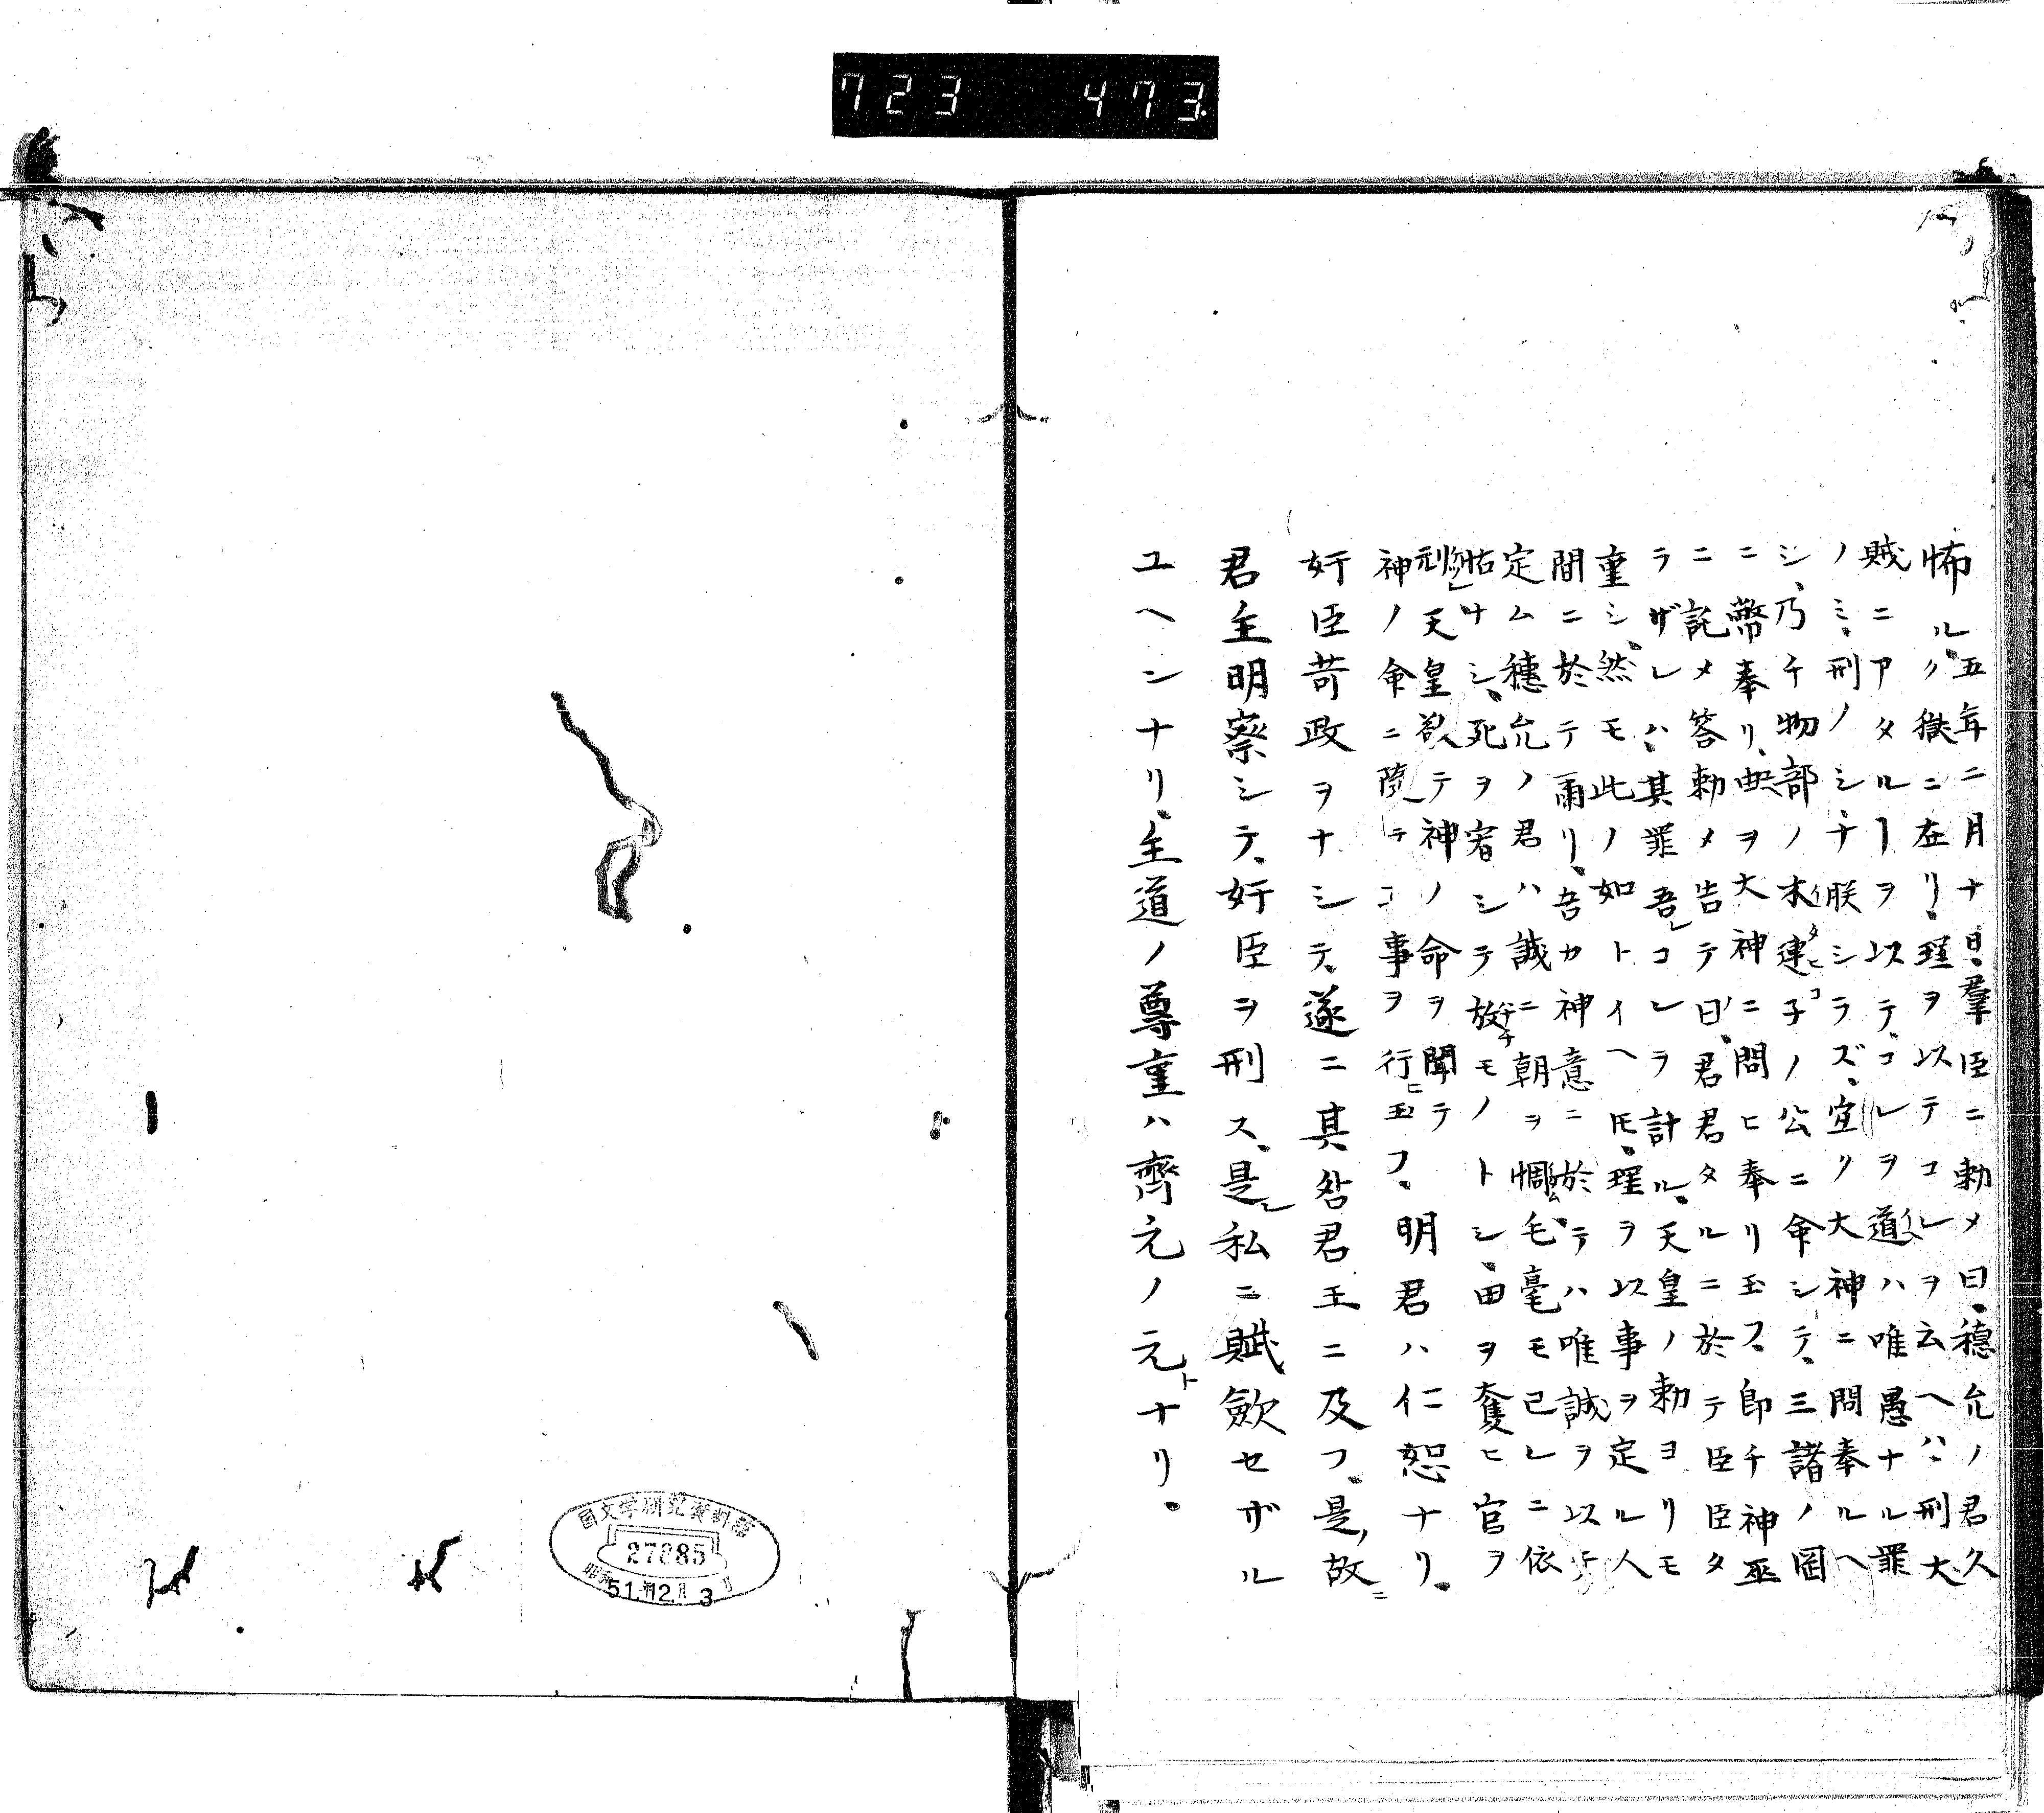 723 473.
怖ル。五年二月十日、羣臣ニ勅メ曰、穗允ノ君久
ク獄ニ在リ。理ヲ以テコレヲ云ヘハ、刑大
賊ニアタルヿヲ以テ、コレヲ道ハ唯愚ナル罪
ノミ、刑ノシ、ナ朕シラズ、宜リ大神ニ問奉ルヘ
シ、乃チ物部ノ木連子ノ公ニ命シテ、三諸ノ岡
ニ幣奉リ、典ヲ大神ニ問ヒ奉リ玉フ。即チ神巫
ニ託メ答勅メ告テ曰、君君タルニ於テ臣臣タ
ラザレハ、其罪吾コレヲ計ル。天皇ノ勅ヨリモ
重シ、然モ此ノ如トイヘ𪜈、理ヲ以事ヲ定ル人
間ニ於テ雨リ、吾カ神意ニ於テハ唯誠ヲ以テ
定ム穗允ノ君ハ誠ニ朝ヲ惆、毛毫モ己レニ依
怙ナシ、死ヲ宥シテ放モノトシ、由ヲ奪ヒ官ヲ
天皇欲テ神ノ命ヲ聞テ
神ノ命ニ随テ事ヲ行ヒ玉フ。明君ハ仁恕ナリ。
奸臣苛政ヲナシテ、遂ニ其咎君王ニ及フ、是故ニ
君主明察シテ、奸臣ヲ刑ス、是レ私ニ賦歛セザル
ユヘンナリ、主道ノ尊重ハ齊元ノ元トナリ。
國文学研究資料館
27885
昭和51年12月3日